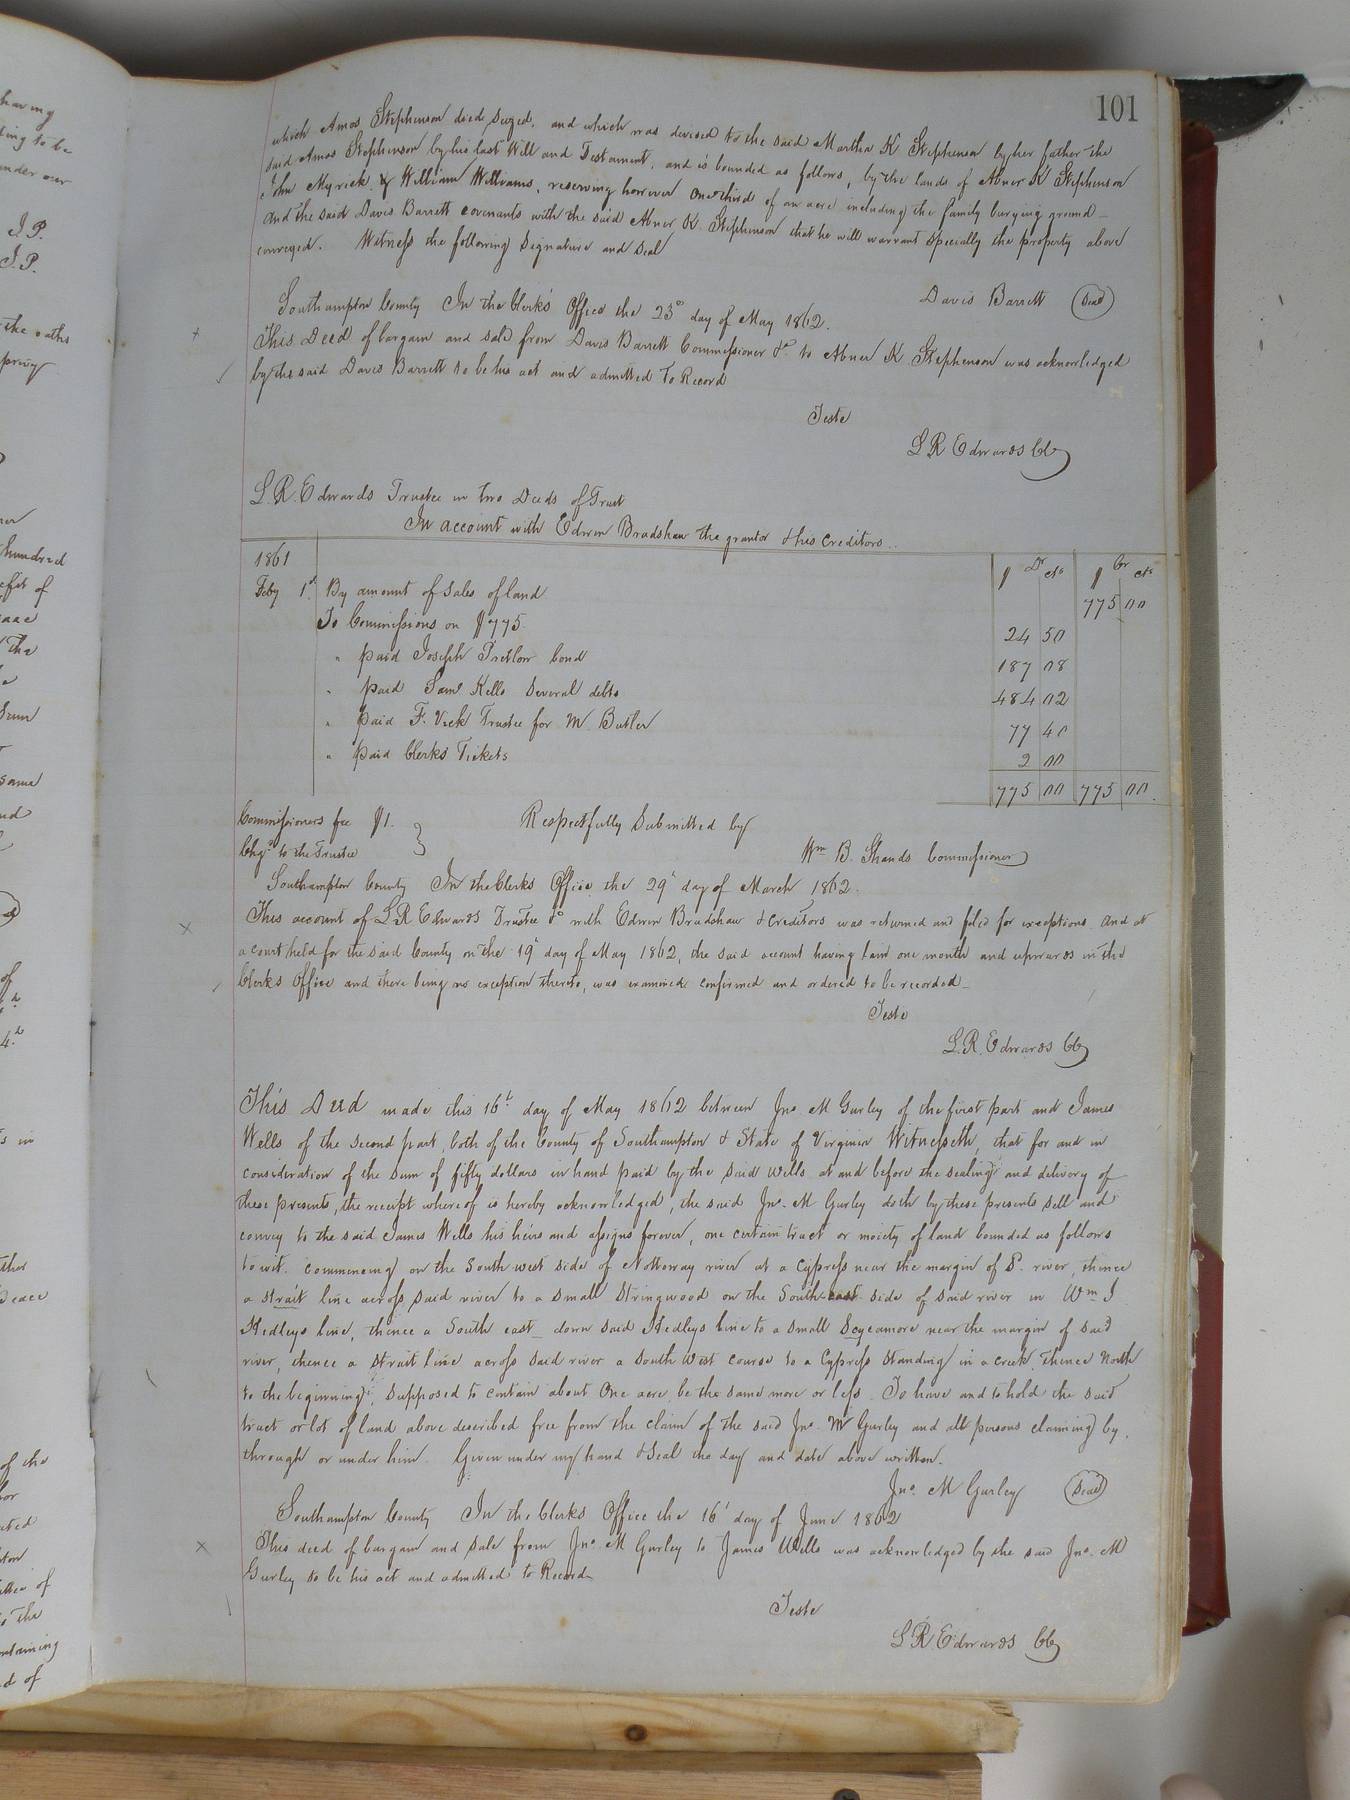 101
which Amos Stephenson died seized. and which was devised to the said Martha K Stephenson by her father the
said Amos Stephenson by his last Will and Testament, and is bounded as follows, by the lands of Abner K Stephenson
John Myrick & William Williams, reserving however One third of an acre including the family burying ground_
and the said Davis Barrett covenants with the said Abner K. Stephenson that he will warrant specially the property above
conveyed. Witness the following signature and seal
Davis Barrett (Seal)
Southampton County In the Clerks Office the 23d day of May 1862.
This Deed of bargain and sale from Davis Barrett Commissioner &c to Abner K Stephenson was acknowledged
by the said Davis Barrett to be his act and admitted to Record
Teste
L R Edwards Clk
L. R. Edwards Trustee in two Deeds of Trust
In account with Edwin Bradshaw the grantor & his Creditors..
1861 $ Dr cts $ Cr cts
Feby 1st By amount of sales of land 775 00
To Commissions on $775 24 50
" paid Joseph Pretlow bond 187 08
" paid Saml Kello several debts 484 02
" paid F. Vick Trustee for M Butler 77 40
" paid Clerks Tickets 2 00
775 00 775 00
Commissioners fee $1. } Respectfully Submitted by
Chgd to the Trustee
Wm B. Shands Commissioner
Southampton County In the Clerks Office the 29th day of March 1862.
This account of L. R Edwards Trustee &c with Edwin Bradshaw & creditors was returned and filed for exceptions And at
a court held for the said County on the 19th day of May 1862, the said account having lain one month and upwards in the
Clerks Office and there being no exception thereto, was examined confirmed and ordered to be recorded_
Teste
L. R. Edwards Clk
This Deed made this 16th day of May 1862 between Jno. M Gurley of the first part and James
Wells of the second part, both of the County of Southampton & State of Virginia Witnesseth, that for and in
consideration of the sum of fifty dollars in hand paid by the said Wells at and before the sealing and delivery of
these presents, the receipt whereof is hereby acknowledged, the said Jno. M Gurley doth by these presents sell and
convey to the said James Wells his heirs and assigns forever, one certain tract or moiety of land bounded as follows
to wit. Commencing on the South west side of Nottoway river at a Cypress near the margin of sd. river, thence
a strait line across said river to a small Stringwood on the South east side of said river in Wm J
Kedleys line, thence a South east_ down said Kedleys line to a small Sycamore near the margin of said
river, thence a strait line across said river a South West course to a Cypress Standing in a creek, thence North
to the beginning, supposed to contain about One acre be the same more or less. To have and to hold the said
tract or lot of land above described free from the claim of the said Jno. M Gurley and all persons claiming by,
through or under him. Given under my hand & Seal the day and date above written.
Jno. M Gurley (Seal)
Southampton County In the Clerks Office the 16th day of June 1862
This deed of bargain and sale from Jno. M Gurley to James Wells was acknowledged by the said Jno. M
Gurley to be his act and admitted to Record
Teste
L R Edwards Clk